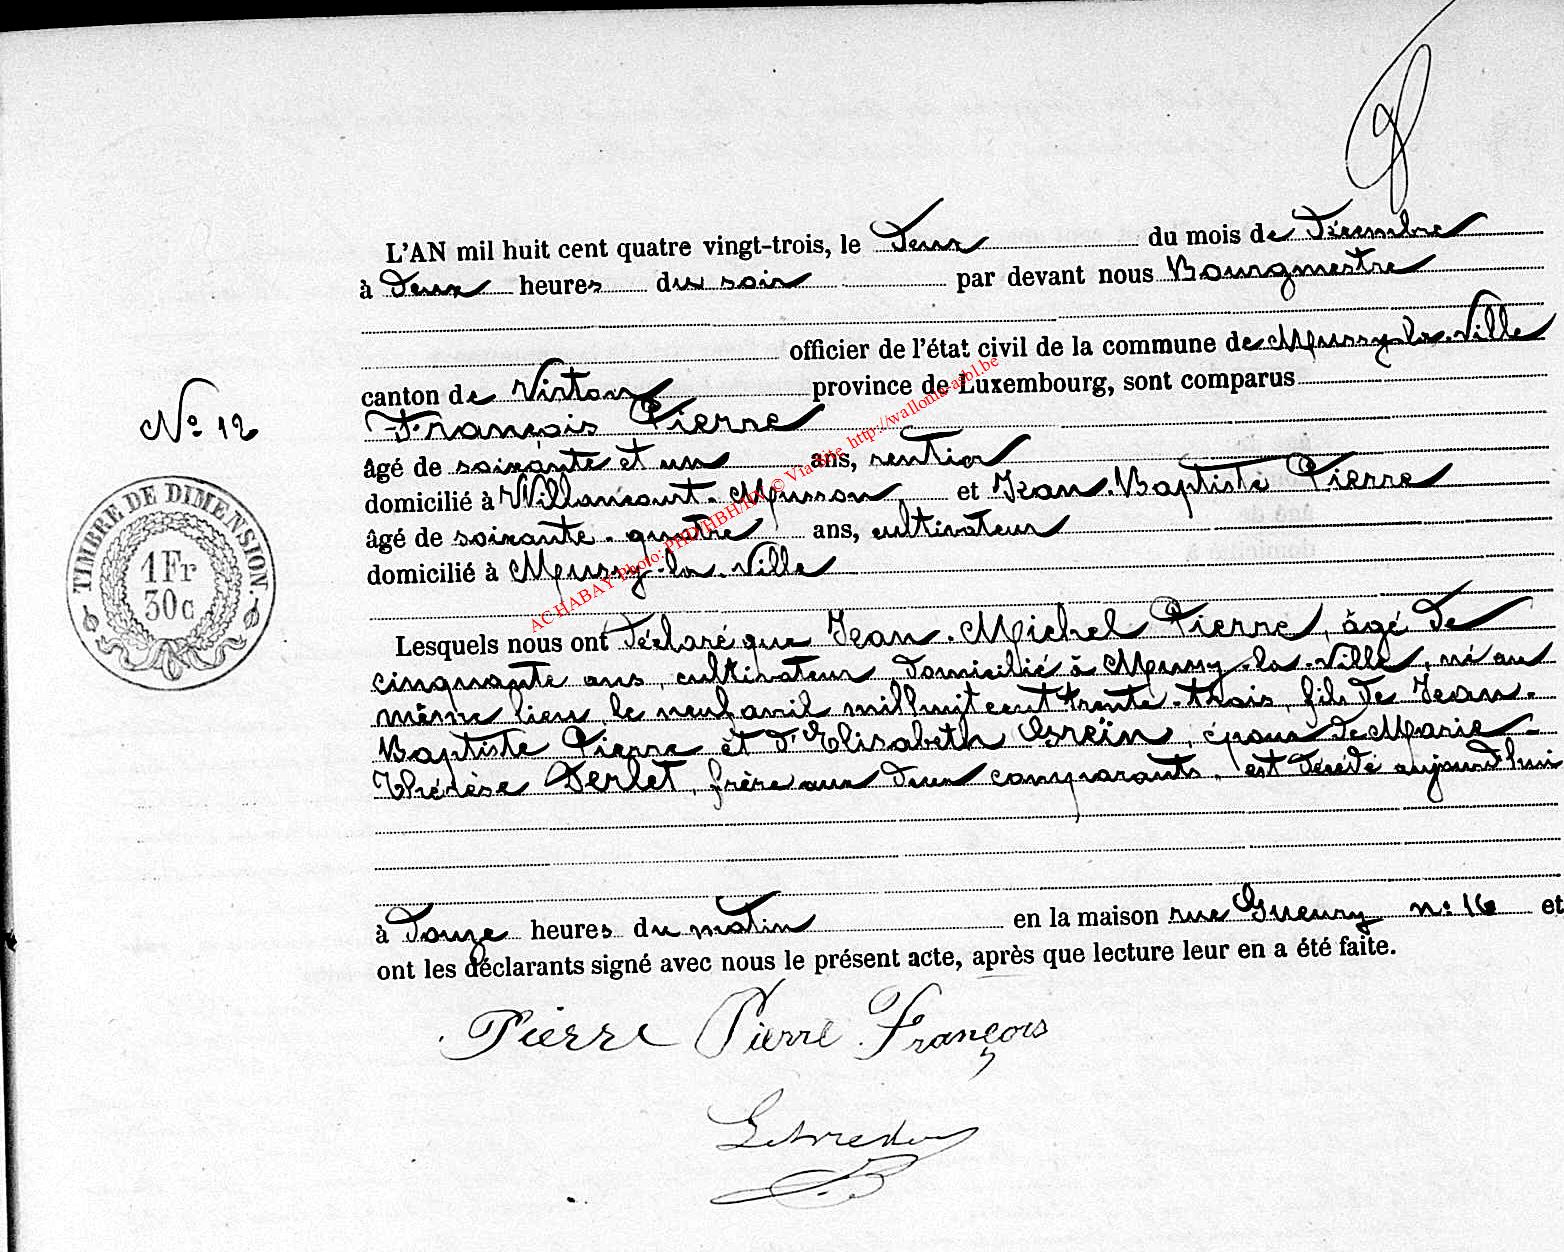 L'AN mil huit cent quatre vingt-trois, le Deux du mois de Décembre
à Deux heures du soir par devant nous Bourgmestre
officier de l'état civil de la commune de Mussy-la-Ville
canton de Virton province de Luxembourg, sont comparus
François Pierre
N° 12
âgé de soixante et un ans, rentier
domicilié à Willancourt-Musson, et Jean-Baptiste Pierre
âgé de soixante-quatre ans, cultivateur
domicilié à Mussy-la-Ville
TIMBRE DE DIMENSION.
1 Fr
30 c
AC HABAY Photo: PHD/HBH/ © Via Site http://wallonia-asbl.be
Lesquels nous ont Déclaré que Jean-Michel Pierre, âgé De
cinquante ans, cultivateur Domicilié à Mussy-la-Ville, né au
même lieu, le neuf avril mil huit cent trente-trois, fils De Jean-
Baptiste Pierre et D'Elisabeth Greïn, époux De Marie-
Thérèse Derlet, frère aux Deux comparants, est Décédé aujourd'hui
à Douze heures du matin en la maison rue Gueury n° 16 et
ont les déclarants signé avec nous le présent acte, après que lecture leur en a été faite.
Pierre Pierre François